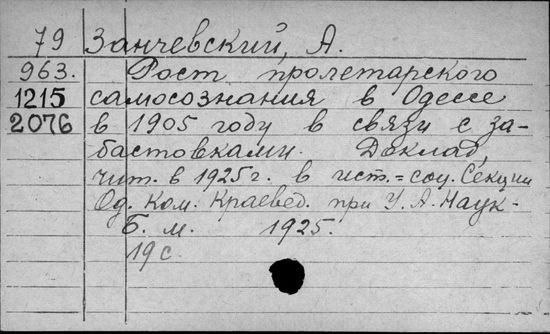 79 Занчевский, А.
963. Рост пролетарского
1215 самосознания в Одессе
2076 в 1905 году в связи с за-
бастовками. Доклад,
чит. в 1925 г. в ист.=соц. Секции
Од. Ком. Краевед. при У. А. Наук-
Б. м. 1925.
19 с.